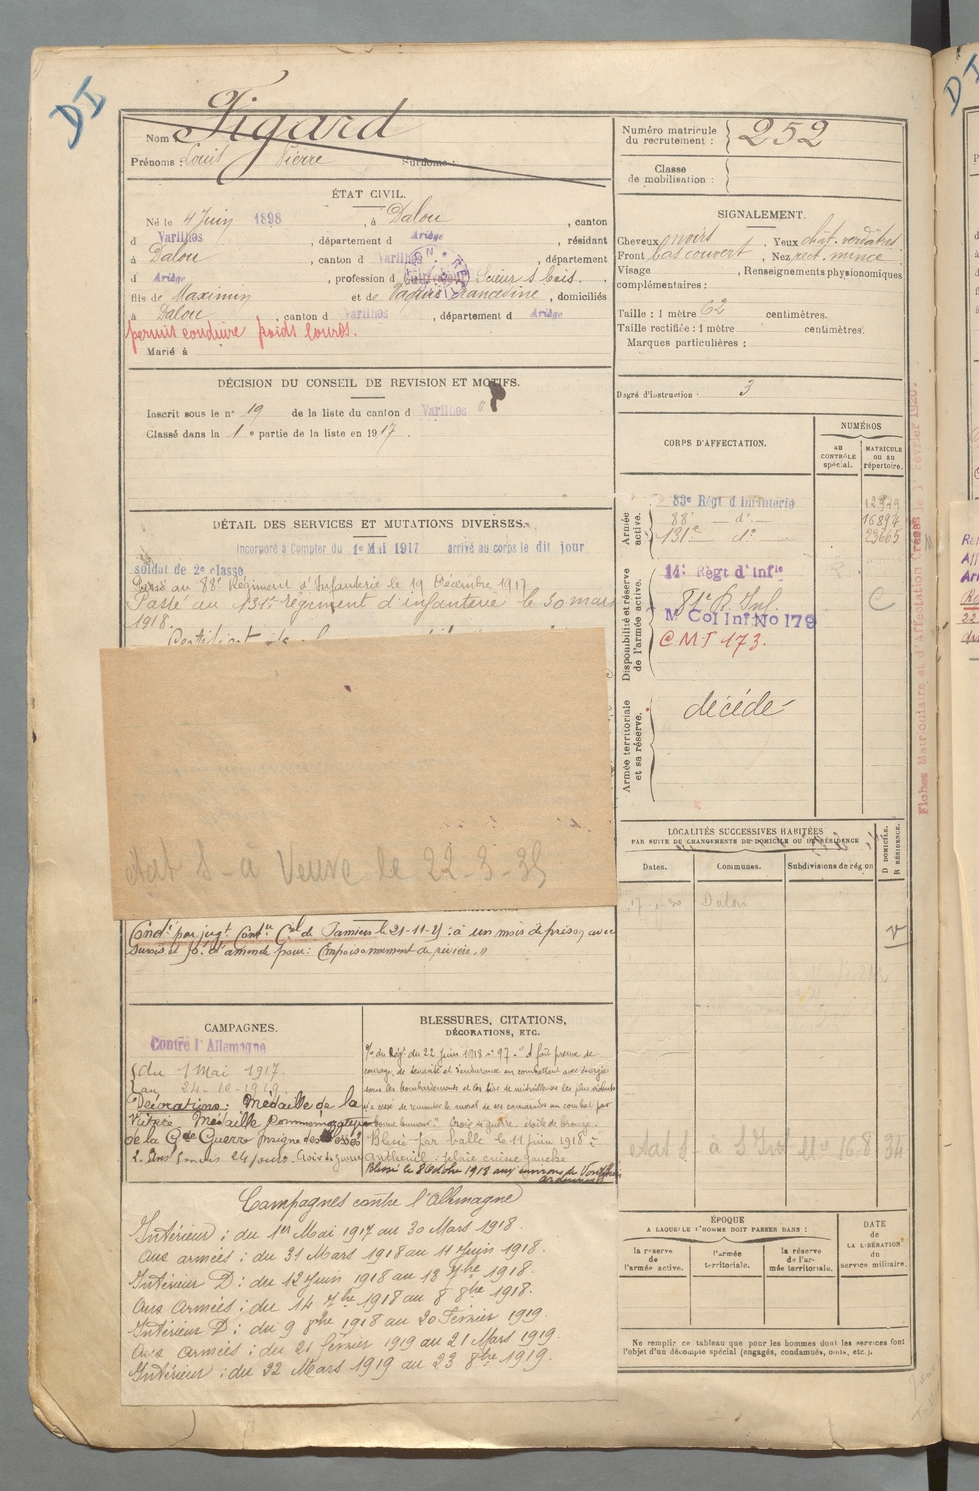 DI
Nom Figard
Prénoms : Louis Pierre Surnoms :
ÉTAT CIVIL.
Né le 4 Juin 1898, à Dalou, canton
d Varilhes, département d Ariège, résidant
à Dalou, canton d Varilhes, département
d Ariège, profession d Scieur s bois.
fils de Maximin et de Francedine, domiciliés
à Dalou, canton d Varilhes, département d Ariège
permis conduire poids lourds.
Marié à
DÉCISION DU CONSEIL DE REVISION ET MOTIFS.
Inscrit sous le n° 19 de la liste du canton d Varilhes
Classé dans la 1e partie de la liste en 1917.
DÉTAIL DES SERVICES ET MUTATIONS DIVERSES.
Incorporé à Compter du 1e Mai 1917 arrivé au corps le dit jour
soldat de 2e classe
Passé au 88e Régiment d'Infanterie le 19 Décembre 1917
Passé au 131e régiment d'infanterie le 30 mars
1918.
à Veuve le 22-3-35
Condé par jugt Contre Cel de Pamiers le 21-11-25 : à un mois de prison avec
sursis et d'amende pour : Empoisonnement de rivière. "
CAMPAGNES.
Contre l'Allemagne
du 1 Mai 1917.
au 24-10-1919
Décorations : Médaille de la
Victoire Médaille Commemorative
de la Gde Guerre Insigne des Blessés
2. Ans 5 mois 24 jours. Croix de guerre
BLESSURES, CITATIONS,
DÉCORATIONS, ETC.
du Régt du 22 Juin 1918 n° 97. "A fait preuve de
courage, de ténacité et d'endurance en combattant avec énergie
sous les bombardements et les tirs de mitrailleuses les plus violents
n'a cessé de remonter le moral de ses camarades au combat par
bonne humeur." Croix de guerre étoile de bronze.
Blessé par balle le 11 juin 1918 à
Antheuil : plaie cuisse gauche
Blessé le 8 Octobre 1918 aux environs de Vouziers
Ardennes
Campagnes contre l'Allemagne
Intérieur : du 1er Mai 1917 au 30 Mars 1918.
Aux armées : du 31 Mars 1918 au 11 Juin 1918.
Intérieur D : du 12 Juin 1918 au 13 7bre 1918.
Aux Armées : du 14 7bre 1918 au 8 8bre 1918.
Intérieur D : du 9 8bre 1918 au 20 Février 1919.
Aux armées : du 21 février 1919 au 21 Mars 1919.
Intérieur : du 22 Mars 1919 au 23 8bre 1919.
Numéro matricule
du recrutement : 252
Classe
de mobilisation :
SIGNALEMENT.
Cheveux noirs. Yeux chât. verdâtres.
Front bas couvert. Nez rect. mince
Visage, Renseignements physionomiques
complémentaires :
Taille : 1 mètre 62 centimètres.
Taille rectifiée : 1 mètre centimètres.
Marques particulières :
Degré d'instruction : 3
CORPS D'AFFECTATION.
NUMÉROS
au
CONTRÔLE
spécial.
MATRICULE
ou au
répertoire.
Armée
active.
83e Régt d'Infanterie
88e d° 16897
131e d° 23665
Disponibilité et réserve
de l'armée active.
14e Régt d'Infie
81e R. Inf.
M Col Inf No 179
C
C.M.T 173.
Armée territoriale
et sa réserve.
décédé
Fiches Matriculaire et d'Affectation Créées le 1 Février 1920.
LOCALITÉS SUCCESSIVES HABITÉES
PAR SUITE DE CHANGEMENTS DE DOMICILE OU DE RÉSIDENCE
Dates.
Communes.
Subdivisions de région
D DOMICILE.
R RÉSIDENCE.
Dalou
V
à 16 8 34
ÉPOQUE
A LAQUELLE L'HOMME DOIT PASSER DANS :
la réserve
de
l'armée active.
l'armée
territoriale.
la réserve
de l'ar-
mée territoriale.
DATE
de
LA LIBÉRATION
du
service militaire.
Ne remplir ce tableau que pour les hommes dont les services font
l'objet d'un décompte spécial (engagés, condamnés, omis, etc.).